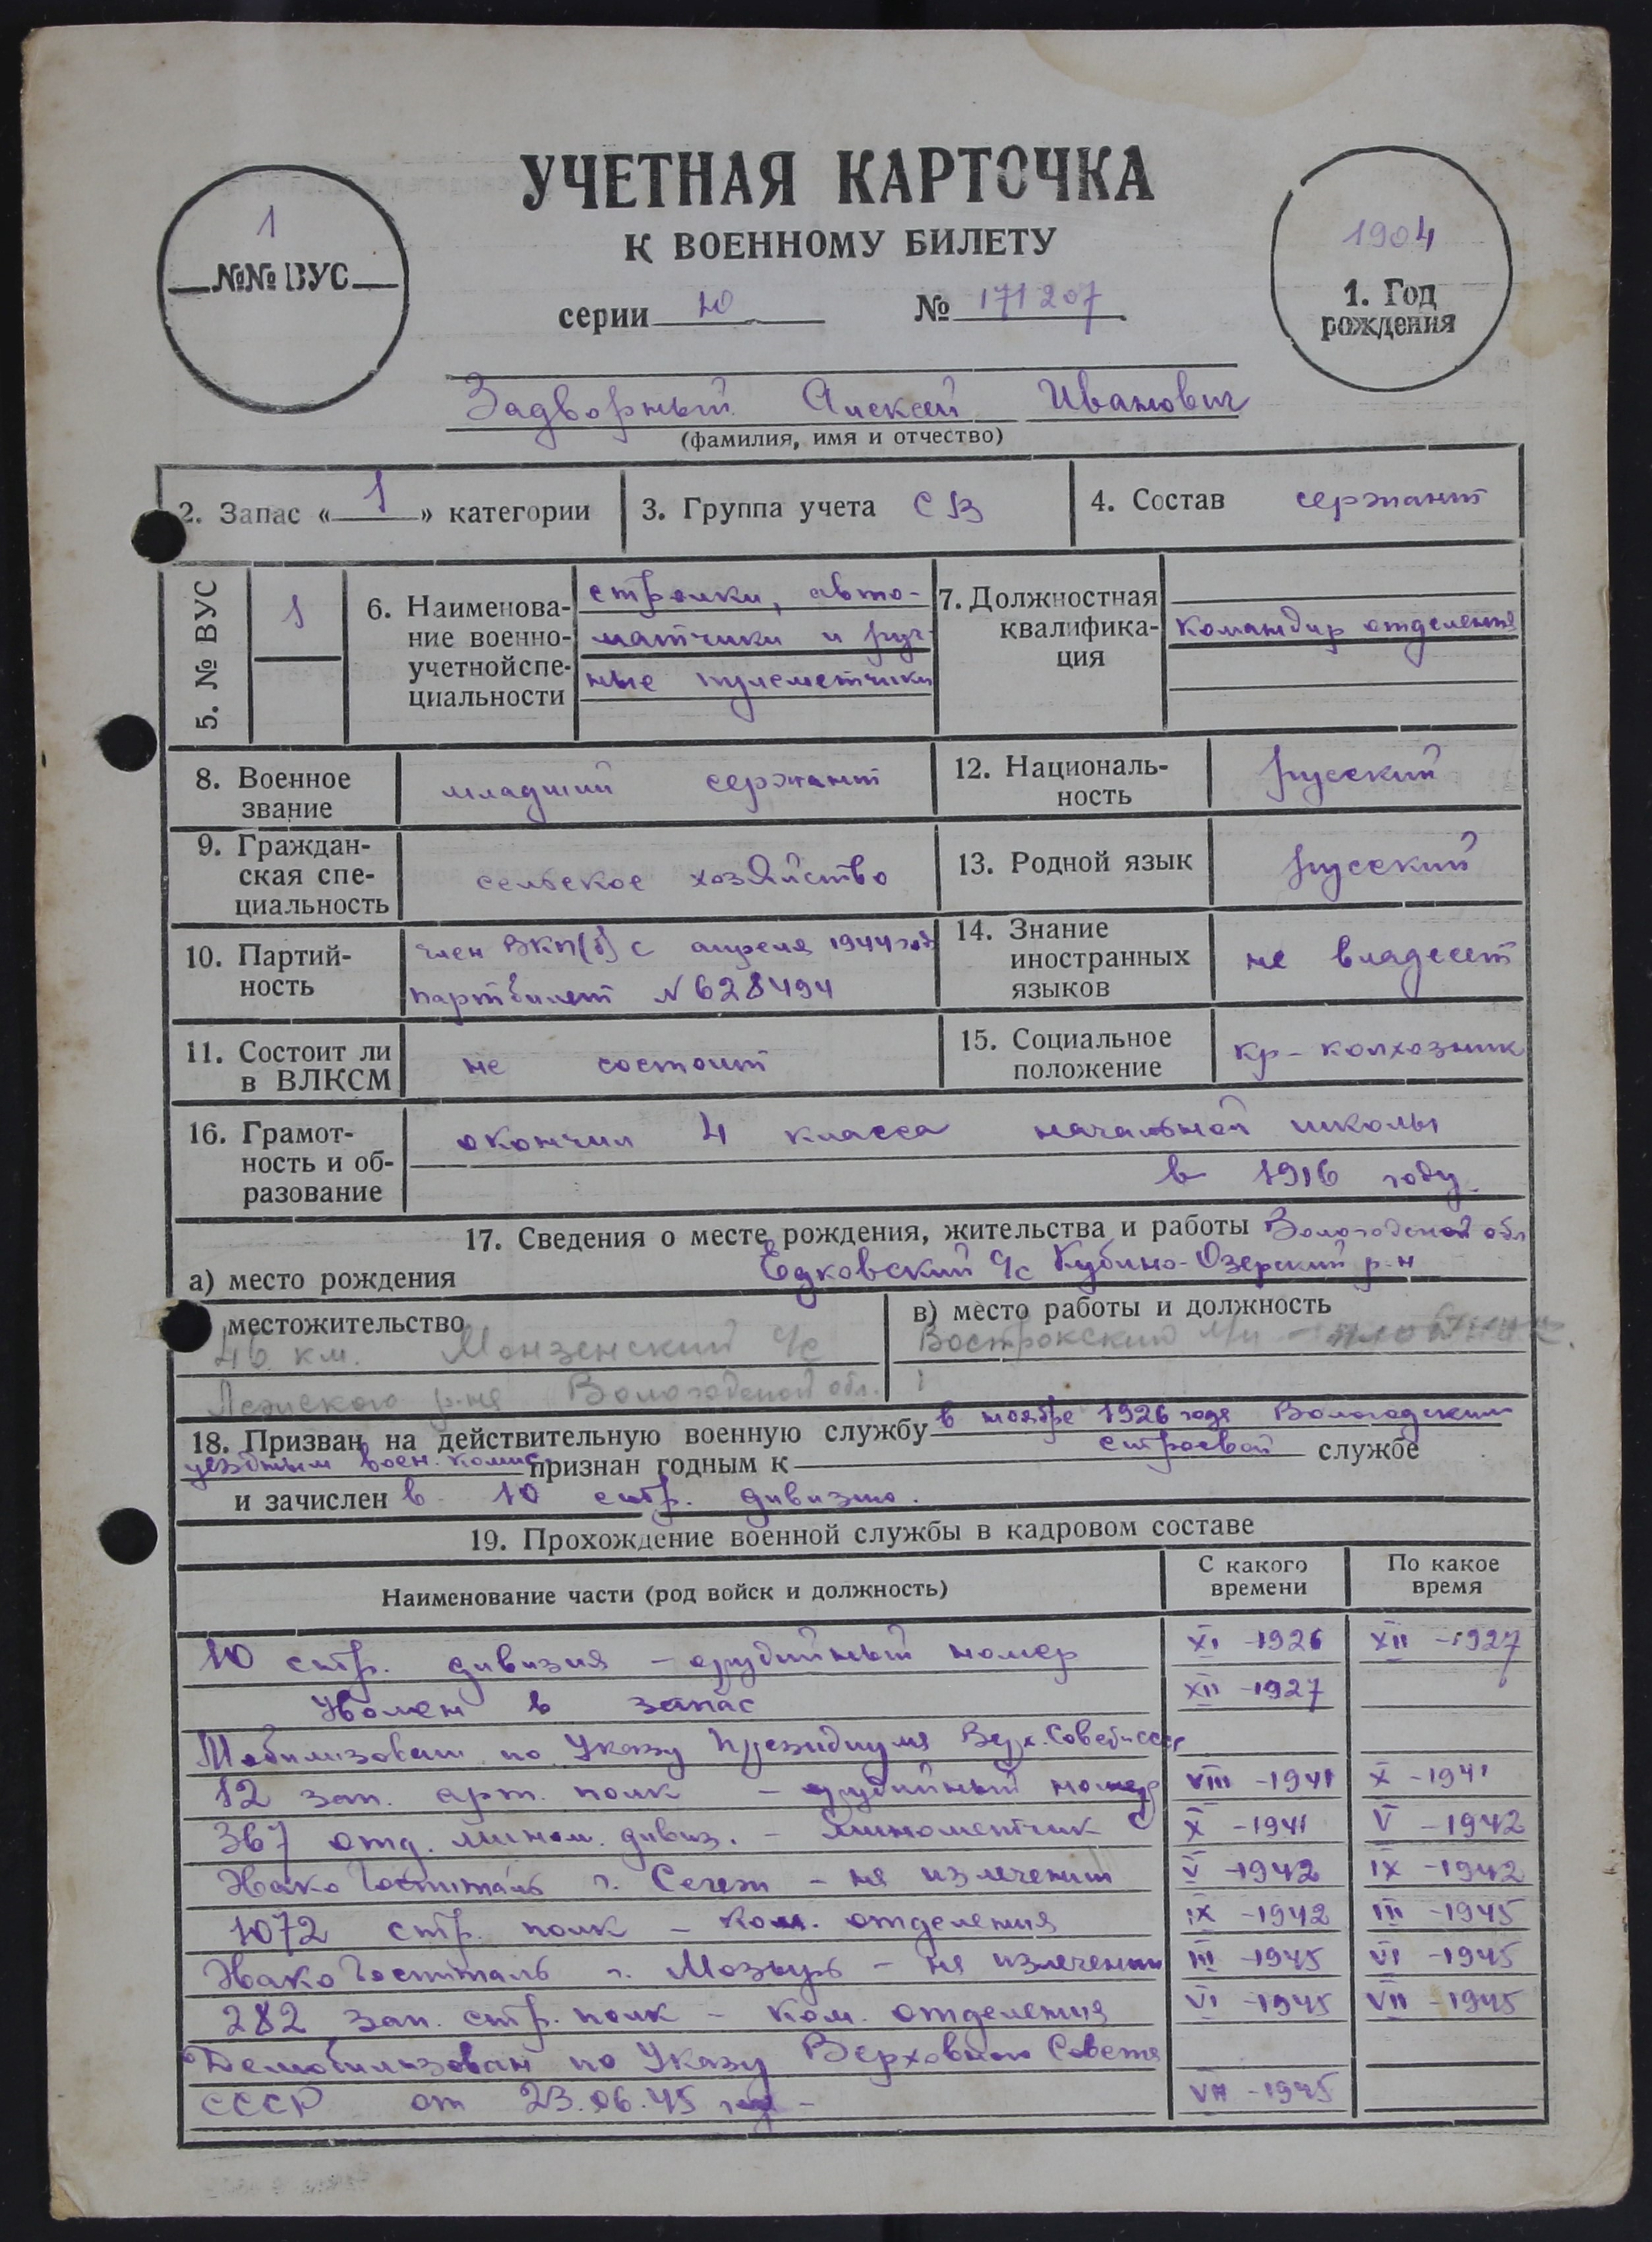 УЧЕТНАЯ КАРТОЧКА
К ВОЕННОМУ БИЛЕТУ
1
№№ ВУС
1904
1. Год
рождения
серии Ю № 171207
Задворный Алексей Иванович
(фамилия, имя и отчество)
2. Запас « 1 » категории
3. Группа учета СВ
4. Состав сержант
5. № ВУС
1
6. Наименова-
ние военно-
учетнойспе-
циальности
стрелки, авто-
матчики и руч-
ные пулеметчики
7. Должностная
квалифика-
ция
командир отделения
8. Военное
звание
младший сержант
12. Националь-
ность
русский
9. Граждан-
ская спе-
циальность
сельское хозяйство
13. Родной язык
русский
10. Партий-
ность
член ВКП(б) с апреля 1944 год
партбилет №628494
14. Знание
иностранных
языков
не владеет
11. Состоит ли
в ВЛКСМ
не состоит
15. Социальное
положение
кр-колхозник
16. Грамот-
ность и об-
разование
окончил 4 класса начальной школы
в 1916 году
17. Сведения о месте рождения, жительства и работы Вологодской обл
а) место рождения Едковский с/с Кубино-Озерский р-н
местожительство
46 км. Монзенский с/с
Лежского р-на Вологодской обл.
в) место работы и должность
Вострокский
18. Призван на действительную военную службу в ноябре 1926 года Вологодским
уездным воен. комис. признан годным к строевой службе
и зачислен в 10 стр. дивизию.
19. Прохождение военной службы в кадровом составе
Наименование части (род войск и должность)
С какого
времени
По какое
время
10 стр. дивизия - орудийный номер XI -1926 XII -1927
Уволен в запас XII -1927
Мобилизован по Указу Президиума Верх. Совета СССР
12 зап. арт. полк - орудийный номер VIII -1941 X -1941
367 отд. мином. дивиз. - минометчик X -1941 V -1942
Эвако Госпиталь г. Сегежи - на излечении V -1942 IX -1942
1072 стр. полк - ком. отделения IX -1942 III -1945
Эвако Госпиталь г. Мозырь - на излечении III -1945 VI -1945
282 зап. стр. полк - ком. отделения VI -1945 VII -1945
Демобилизован по Указу Верховного Совета
СССР от 23.06.45 год - VII -1945